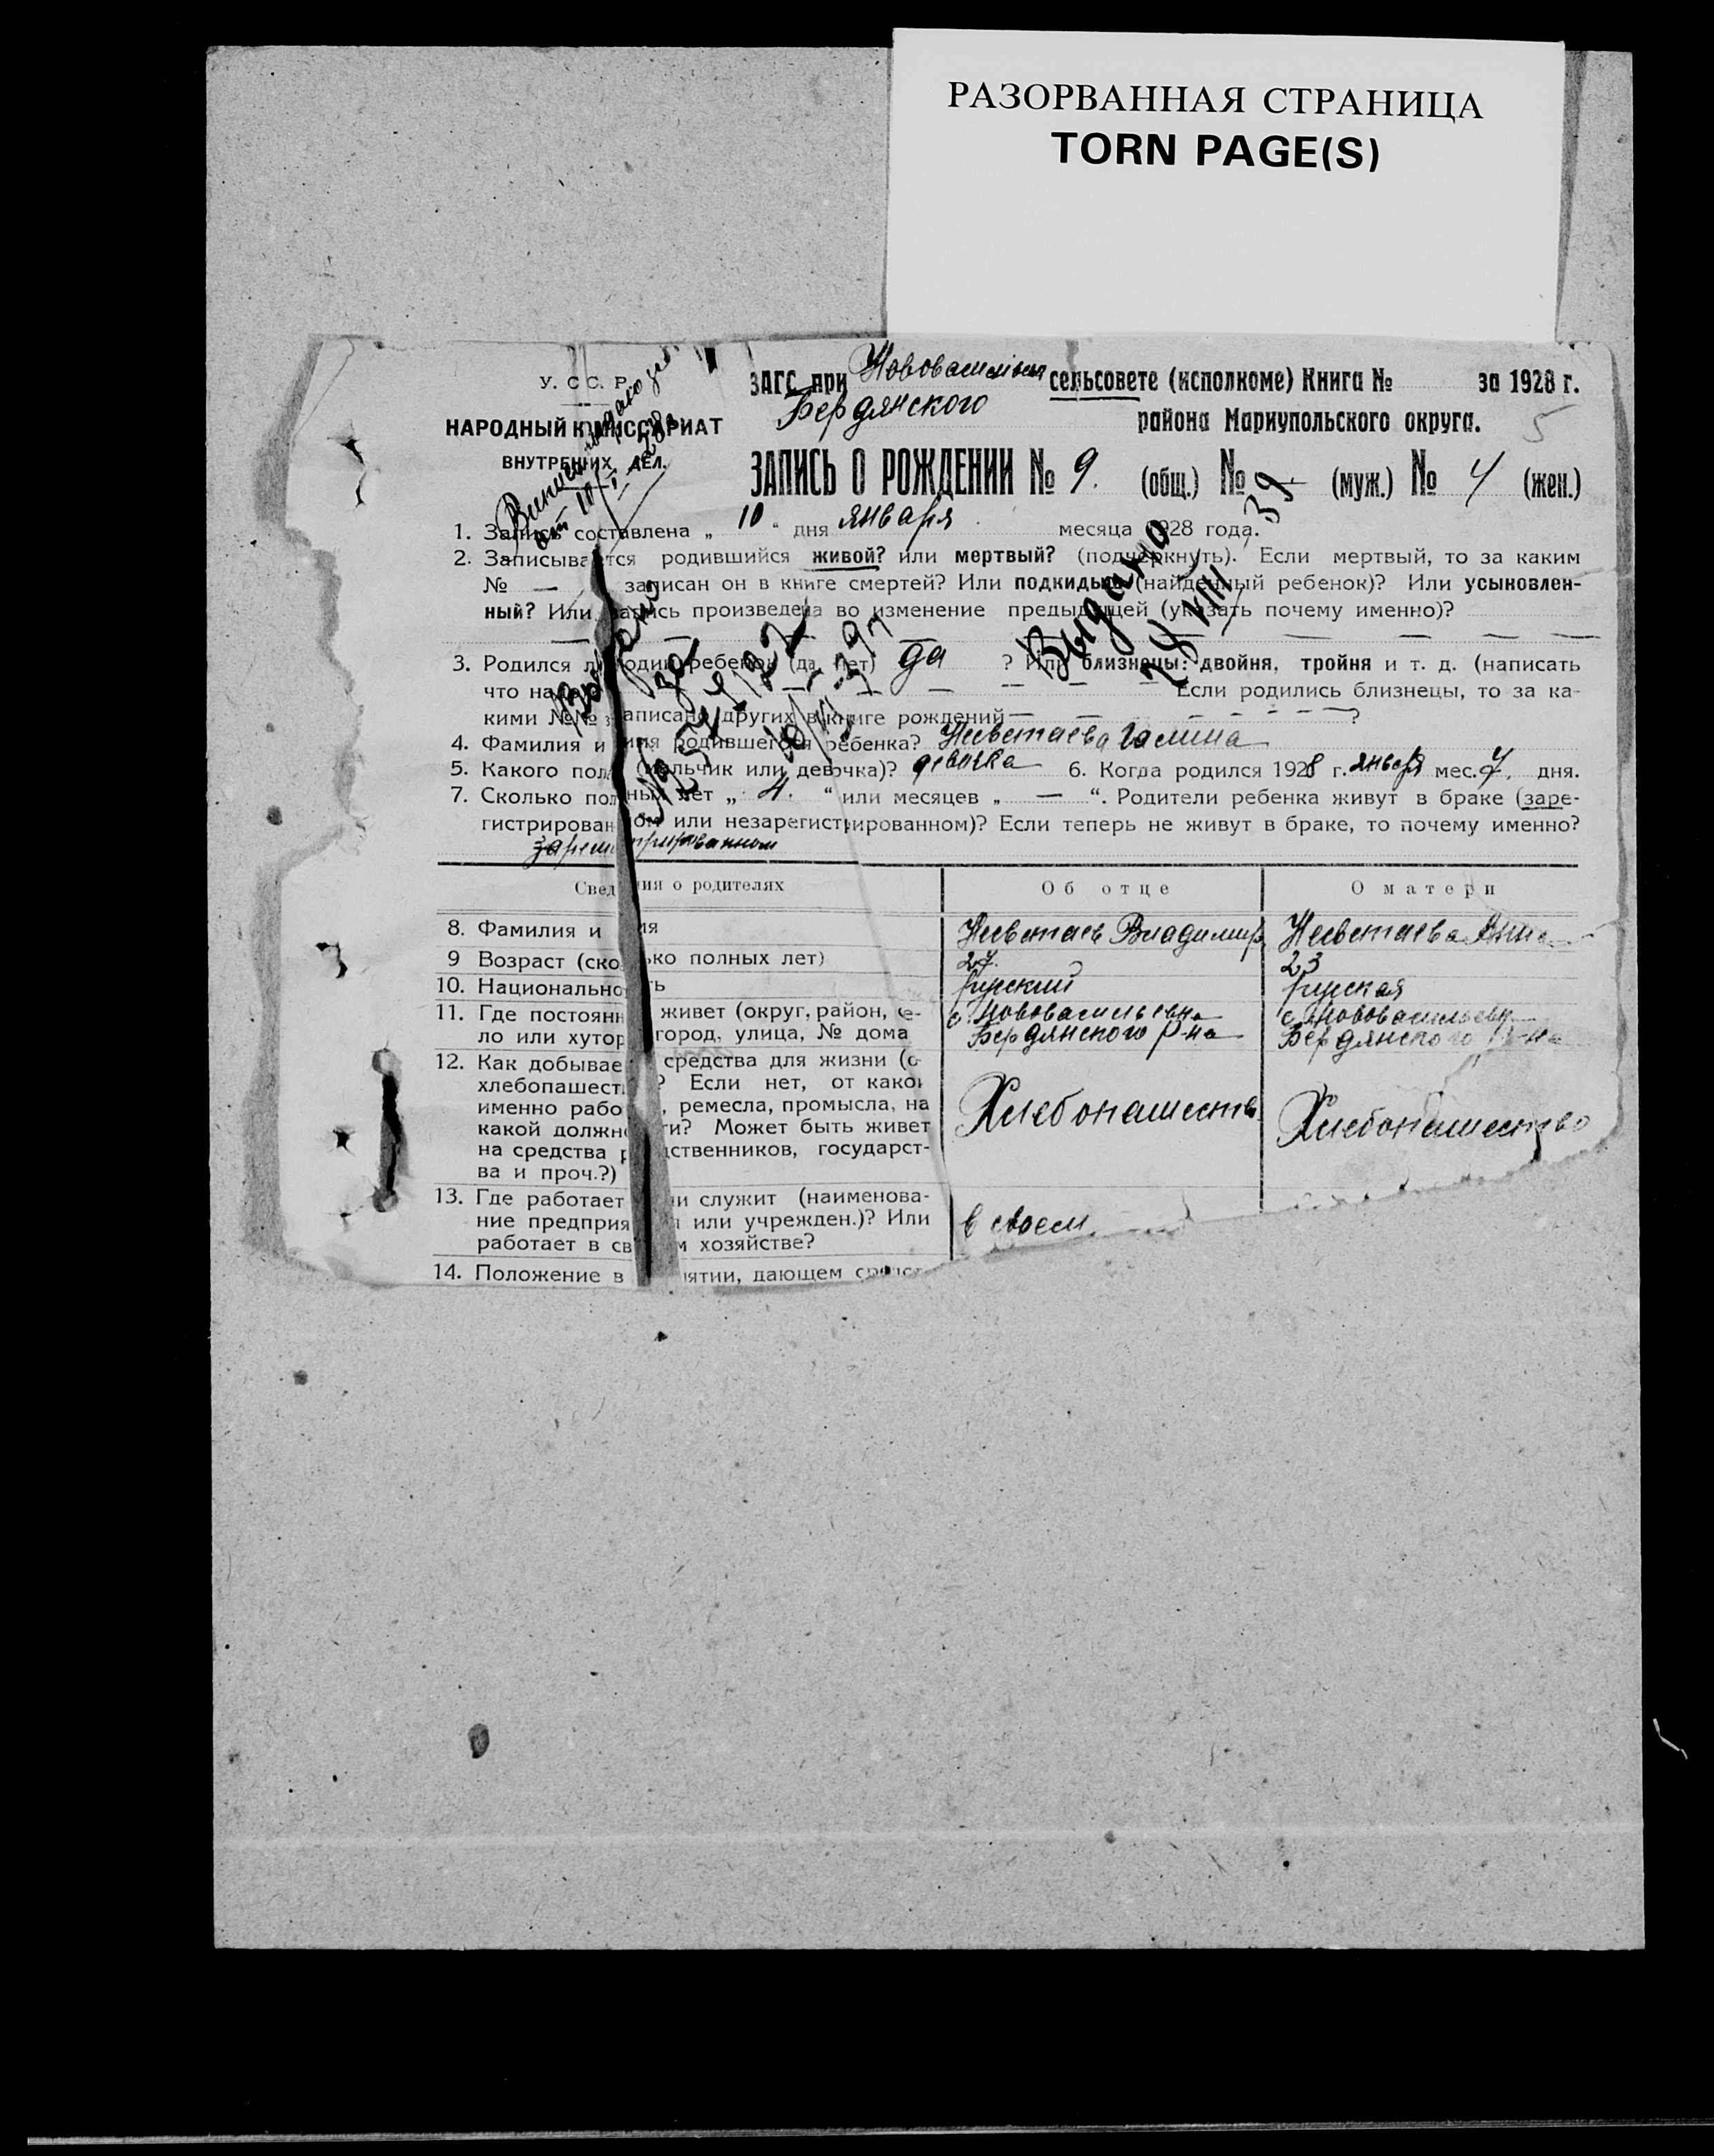 РАЗОРВАННАЯ СТРАНИЦА
TORN PAGE(S)
У. С С. Р.
НАРОДНЫЙ КОМИССАРИАТ
ВНУТРЕННИХ ДЕЛ.
ЗАГС при Нововасильев сельсовете (исполкоме) Книга № за 1928 г.
Бердянского района Мариупольского округа.
5
ЗАПИСЬ О РОЖДЕНИИ № 9. (общ.) № — (муж.) № 4 (жен.)
от 10/I - 28 г.
1. Запись составлена „ 10 “ дня января месяца 1928 года.
2. Записывается родившийся живой? или мертвый? (подчеркнуть). Если мертвый, то за каким
№ — записан он в книге смертей? Или подкидыш (найденный ребенок)? Или усыновлен-
ный? Или запись произведена во изменение предыдущей (указать почему именно)?
Выдано
3. Родился ли один ребенок (да, нет) да ? Или близнецы: двойня, тройня и т. д. (написать
что надо) Если родились близнецы, то за ка-
кими №№ записано других в книге рождений — ?
4. Фамилия и имя родившегося ребенка? Несветаева Галина
5. Какого пола (мальчик или девочка)? девочка 6. Когда родился 1928 г. января мес. 7. дня.
7. Сколько полных лет „ 4. “ или месяцев „ — “. Родители ребенка живут в браке (заре-
гистрированном или незарегистрированном)? Если теперь не живут в браке, то почему именно?
зарегистрированном
Сведения о родителях Об отце О матери
8. Фамилия и имя Несветаев Владимир Несветаева Анна
9 Возраст (сколько полных лет) 27. 23
10. Национальность русский русская
11. Где постоянно живет (округ, район, се- с. Нововасильевка с. Нововасильевка
ло или хутор, город, улица, № дома Бердянского р-на Бердянского р-на
12. Как добывает средства для жизни (от
хлебопашества? Если нет, от какой
именно работы, ремесла, промысла, на Хлебопашеств Хлебопашество
какой должности? Может быть живет
на средства родственников, государст-
ва и проч.?)
13. Где работает или служит (наименова-
ние предприятия или учрежден.)? Или в своем
работает в своем хозяйстве?
14. Положение в занятии, дающем средст-